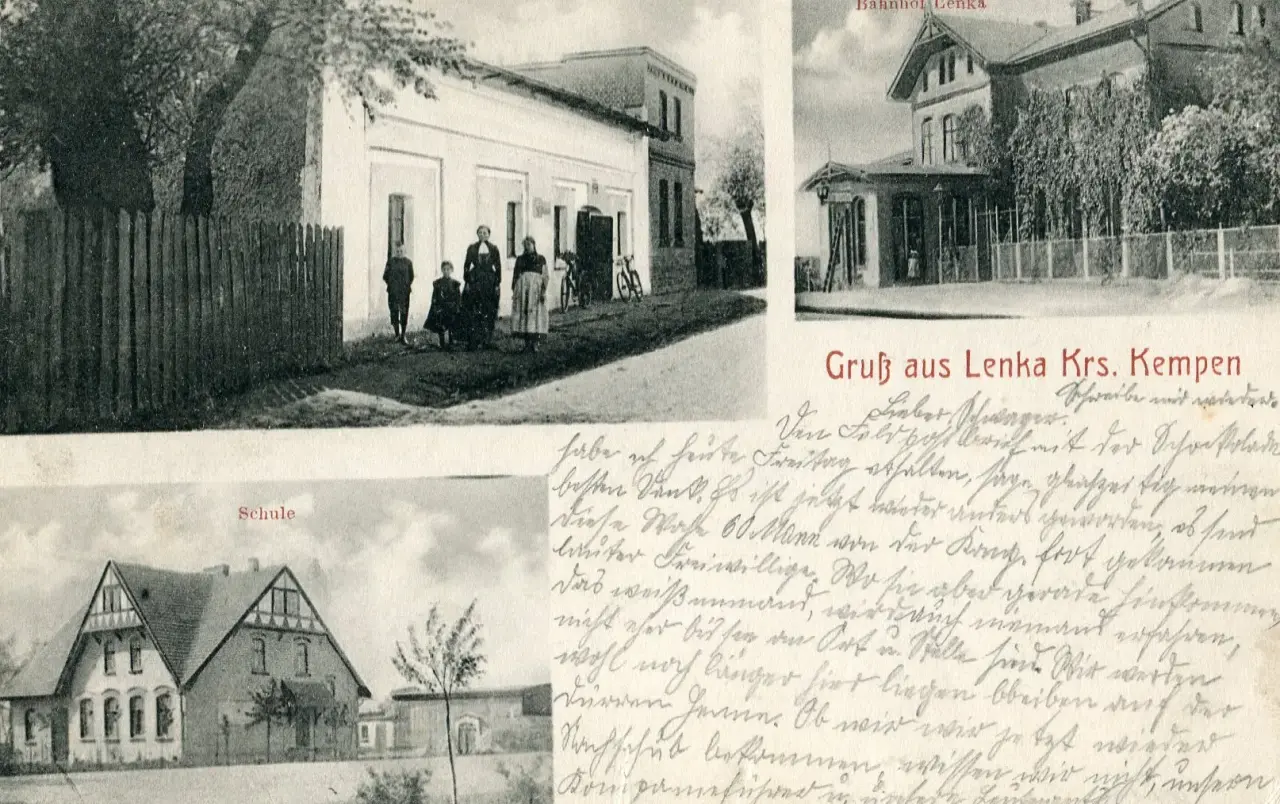 Bahnhof Lenka
Gruß aus Lenka Krs. Kempen
Schule
Schreibe mir wieder.
Lieber Schwager.
Den Feldpostbrief mit der Schockolade
habe ich heute Freitag erhalten, sage gleichzeitig meinen
besten Dank. Es ist jetzt wieder anders geworden, es sind
diese Woche 60 Mann von der Komp. fort gekommen
lauter Freiwillige. Wo sie aber gerade hinkommen
das weiß niemand, wird auch niemand erfahren,
nicht eher bis sie an Ort u. Stelle sind. Wir werden
wohl noch länger hier liegen bleiben auf der
dürren Henne. Ob wir wir jetzt wieder
Nachschub bekommen, wissen wir nicht, unsern
Kompanieführer u. unsere